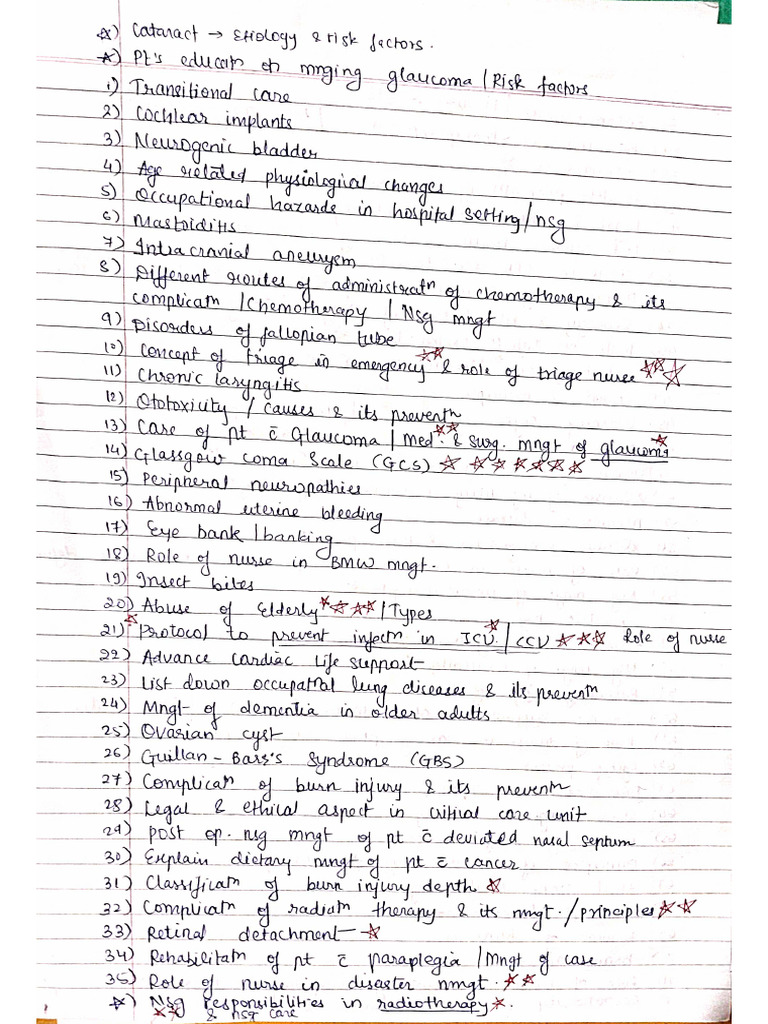 ☆) Cataract → Etiology & risk factors.
☆) Pt's educatn on mnging glaucoma / Risk factors
1) Transitional care
2) Cochlear implants
3) Neurogenic bladder
4) Age related physiological changes
5) Occupational hazards in hospital setting / nsg
6) Mastoiditis
7) Intracranial aneurysm
8) Different routes of administratn of chemotherapy & its
complicatn / Chemotherapy / Nsg mngt
9) Disorders of fallopian tube
10) Concept of triage in emergency ☆☆ & role of triage nurse ☆☆☆
11) Chronic laryngitis
12) Ototoxicity / causes & its preventn
13) Care of pt c̄ Glaucoma / Med. ☆☆ & surg. mngt of glaucoma ☆
14) Glassgow coma Scale (GCS) ☆ ☆ ☆ ☆ ☆ ☆ ☆
15) Peripheral neuropathies
16) Abnormal uterine bleeding
17) Eye bank / banking
18) Role of nurse in BMW mngt.
19) Insect bites
20) Abuse of Elderly ☆☆☆☆ / Types
21) ☆ Protocol to prevent infectn in ICU ☆ / CCU ☆☆☆ Role of nurse
22) Advance Cardiac Life Support
23) List down occupatnal lung diseases & its preventn
24) Mngt of dementia in older adults
25) Ovarian cyst
26) Guillan-Barre's Syndrome (GBS)
27) Complicatn of burn injury & its preventn
28) Legal & ethical aspect in critical care unit
29) Post op. nsg mngt of pt c̄ deviated nasal septum
30) Explain dietary mngt of pt c̄ cancer
31) Classificatn of burn injury depth ☆
32) Complicatn of radiatn therapy & its mngt. / principles ☆☆
33) Retinal detachment ☆
34) Rehabilitatn of pt c̄ paraplegia / Mngt of case
35) Role of nurse in disaster mngt. ☆☆
☆) Nsg responsibilities in radiotherapy ☆.
☆☆ & nsg care